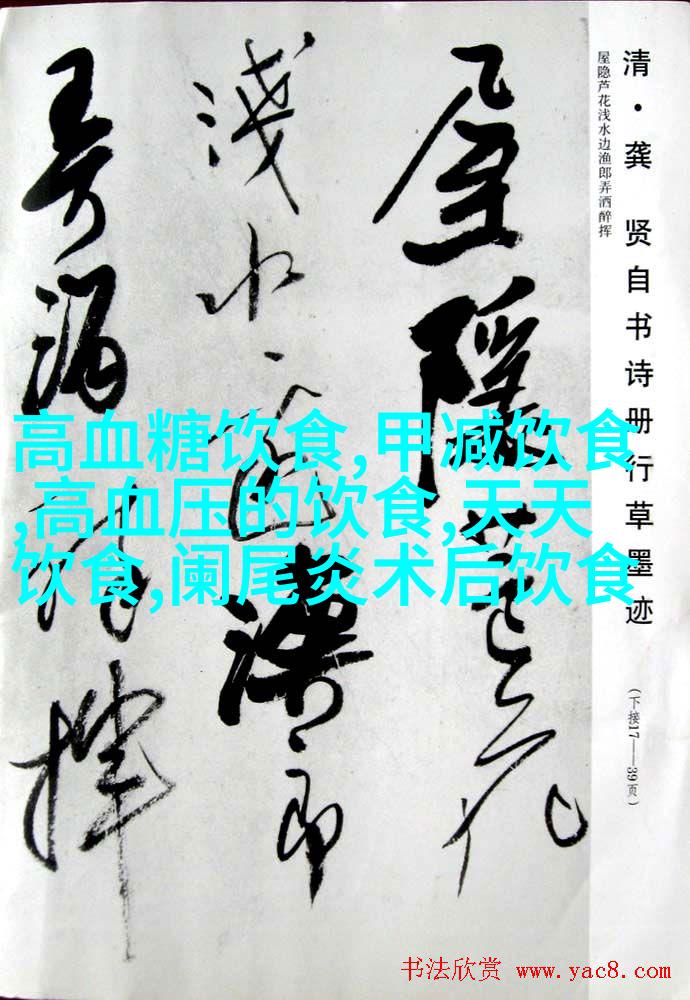 清·龚 贤自书诗册行草墨迹
(下接17——39页)
屋隐芦花浅水边渔郎弄洒醉挥
屋隱蘆花
淺水邊漁郎
弄酒醉揮
高血糖饮食,甲减饮食
,高血压的饮食,天天
饮食,阑尾炎术后饮食
书法欣赏 www.yac8.com